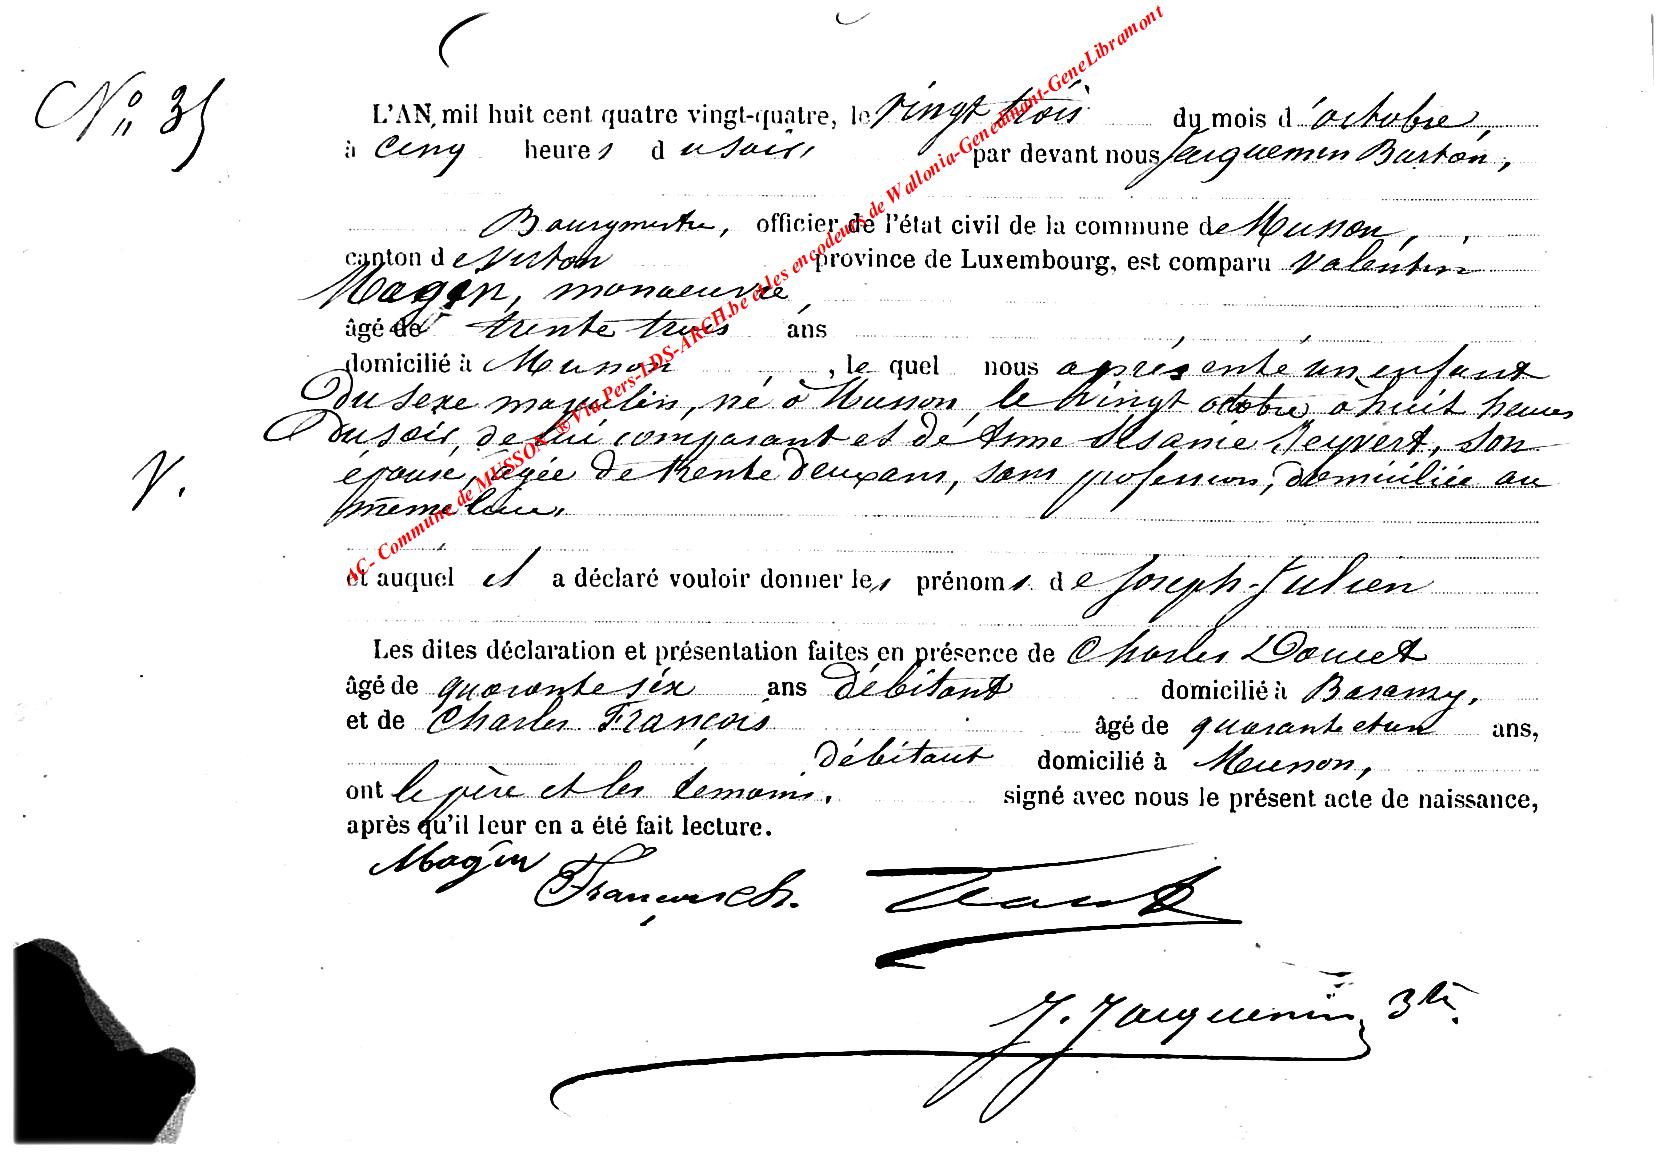 N° 35
L'AN mil huit cent quatre vingt-quatre, le vingt trois du mois d'octobre,
à cinq heures du soir, par devant nous Jacquemin Barton,
Bourgmestre, officier de l'état civil de la commune de Musson,
canton de Virton province de Luxembourg, est comparu Valentin
Magin, manoeuvre,
âgé de trente trois ans
domicilié à Musson, le quel nous a présenté un enfant
du sexe masculin, né à Musson, le vingt octobre à huit heures
du soir, de lui comparant et de Anne son
épouse, âgée de trente deux ans, sans profession, domiciliée au
même lieu.
V.
et auquel il a déclaré vouloir donner les prénoms de Joseph-Julien
Les dites déclaration et présentation faites en présence de Charles Doucet
âgé de quarante six ans débitant domicilié à Baranzy,
et de Charles François âgé de quarante et un ans,
débitant domicilié à Musson,
ont le père et les témoins. signé avec nous le présent acte de naissance,
après qu'il leur en a été fait lecture.
Magin
François Ch.
J. Jacquemin
AC- Commune de MUSSON ® Via Pers-LDS-ARCH.be et les encodeurs de Wallonia-Genedinant-GeneLibramont